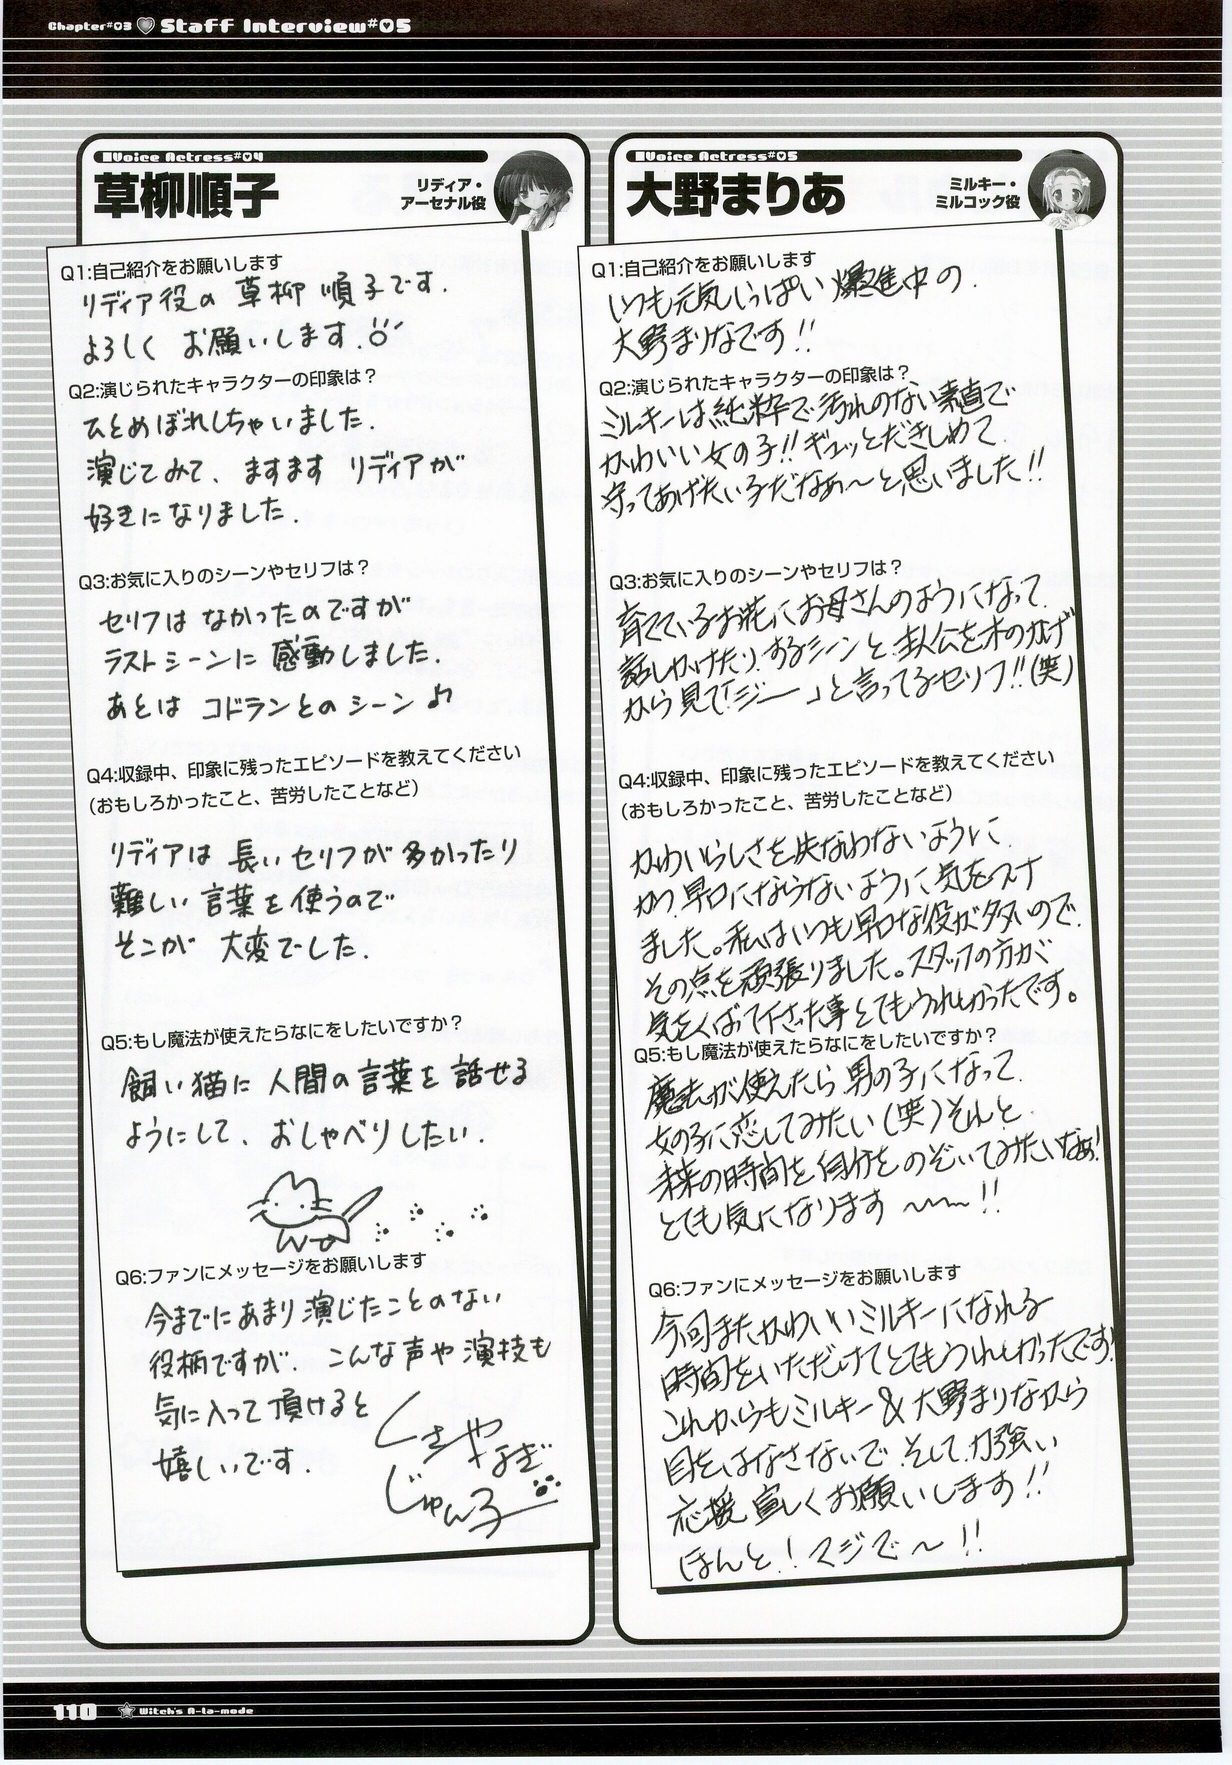 Chapter#03 Staff Interview#05
Voice Actress#04
草柳順子
リディア・
アーセナル役
Q1:自己紹介をお願いします
リディア役の 草柳 順子です.
よろしく お願いします.
Q2:演じられたキャラクターの印象は？
ひとめぼれしちゃいました.
演じてみて、ますます リディアが
好きになりました.
Q3:お気に入りのシーンやセリフは？
セリフは なかったのですが
ラストシーンに 感動しました.
あとは コドランとの シーン♪
Q4:収録中、印象に残ったエピソードを教えてください
（おもしろかったこと、苦労したことなど）
リディアは 長い セリフが 多かったり
難しい 言葉を使うので
そこが 大変でした.
Q5:もし魔法が使えたらなにをしたいですか？
飼い猫に 人間の言葉を 話せる
ようにして、おしゃべりしたい.
Q6:ファンにメッセージをお願いします
今までにあまり演じたことのない
役柄ですが、こんな声や演技も
気に入って頂けると
嬉しいです.
くさや
なぎ
じゅん子
Voice Actress#05
大野まりあ
ミルキー・
ミルコック役
Q1:自己紹介をお願いします
いつも元気いっぱい 爆進中の.
大野まりなです!!
Q2:演じられたキャラクターの印象は？
ミルキーは純粋で汚れのない素直で
かわいい女の子!!ギュッとだきしめて
守ってあげたい子だなぁ〜と思いました!!
Q3:お気に入りのシーンやセリフは？
育てているお花にお母さんのようになって
話しかけたり、するシーンと、主人公を木のかげ
から見て「ジー―」と言ってるセリフ!!(笑)
Q4:収録中、印象に残ったエピソードを教えてください
（おもしろかったこと、苦労したことなど）
かわいらしさを失なわないように、
かつ、早口にならないように気をつけ
ました。私はいつも早口な役が多いので、
その点を頑張りました。スタッフの方が
気をくばって下さった事とてもうれしかったです。
Q5:もし魔法が使えたらなにをしたいですか？
魔法が使えたら男の子になって
女の子に恋してみたい(笑)それと、
未来の時間を自分をのぞいてみたいなぁ!
とても気になります 〜〜!!
Q6:ファンにメッセージをお願いします
今回またかわいいミルキーになれる
時間をいただけてとてもうれしかったです!
これからもミルキー&大野まりなから
目をはなさないで、そして力強い
応援宜しくお願いします!!
ほんと!マジで〜!!
110 Witch's A-la-mode